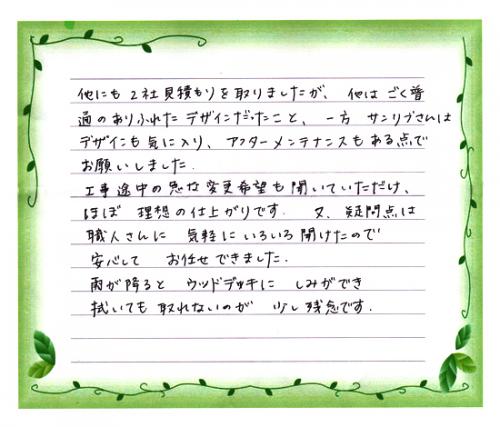 他にも2社見積もりを取りましたが、他はごく普
通のありふれたデザインだったこと、一方 サンリブさんは
デザインも気に入り、アフターメンテナンスもある点で
お願いしました.
工事途中の急な変更希望も聞いていただけ、
ほぼ 理想の仕上がりです. 又、疑問点は
職人さんに 気軽にいろいろ聞けたので
安心して お任せできました.
雨が降ると ウッドデッキに しみができ
拭いても 取れないのが 少し残念です.